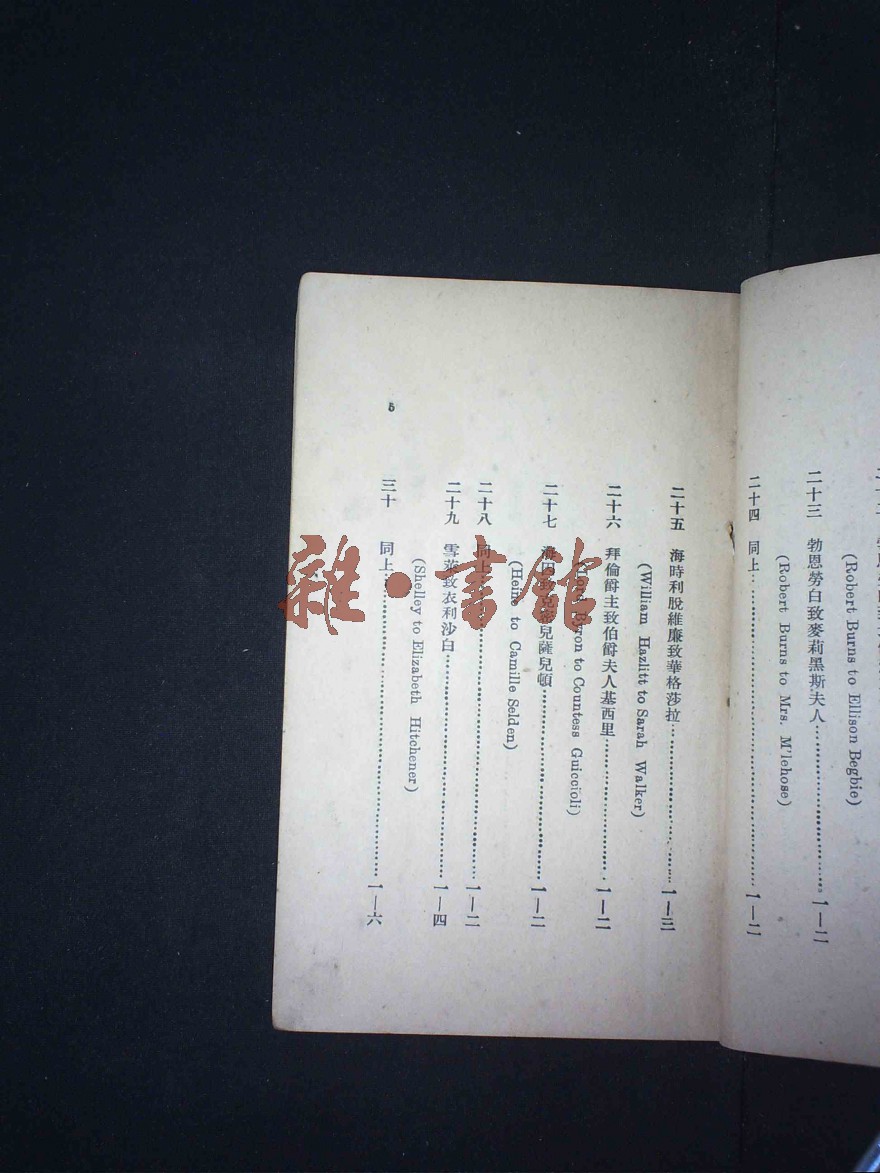 (Robert Burns to Ellison Begbie)
二十三 勃恩勞白致麥莉黑斯夫人……1—二
(Robert Burns to Mrs. M'lehose)
二十四 同上……1—二
二十五 海時利脫維廉致華格莎拉……1—三
(William Hazlitt to Sarah Walker)
二十六 拜倫爵主致伯爵夫人基西里……1—二
(Lord Byron to Countess Guiccioli)
二十七 海田致克密兒薩兒頓……1—二
(Heine to Camille Selden)
二十八 同上……1—二
二十九 雪萊致衣利沙白……1—四
(Shelley to Elizabeth Hitchener)
三十 同上……1—六
5
雜·書館